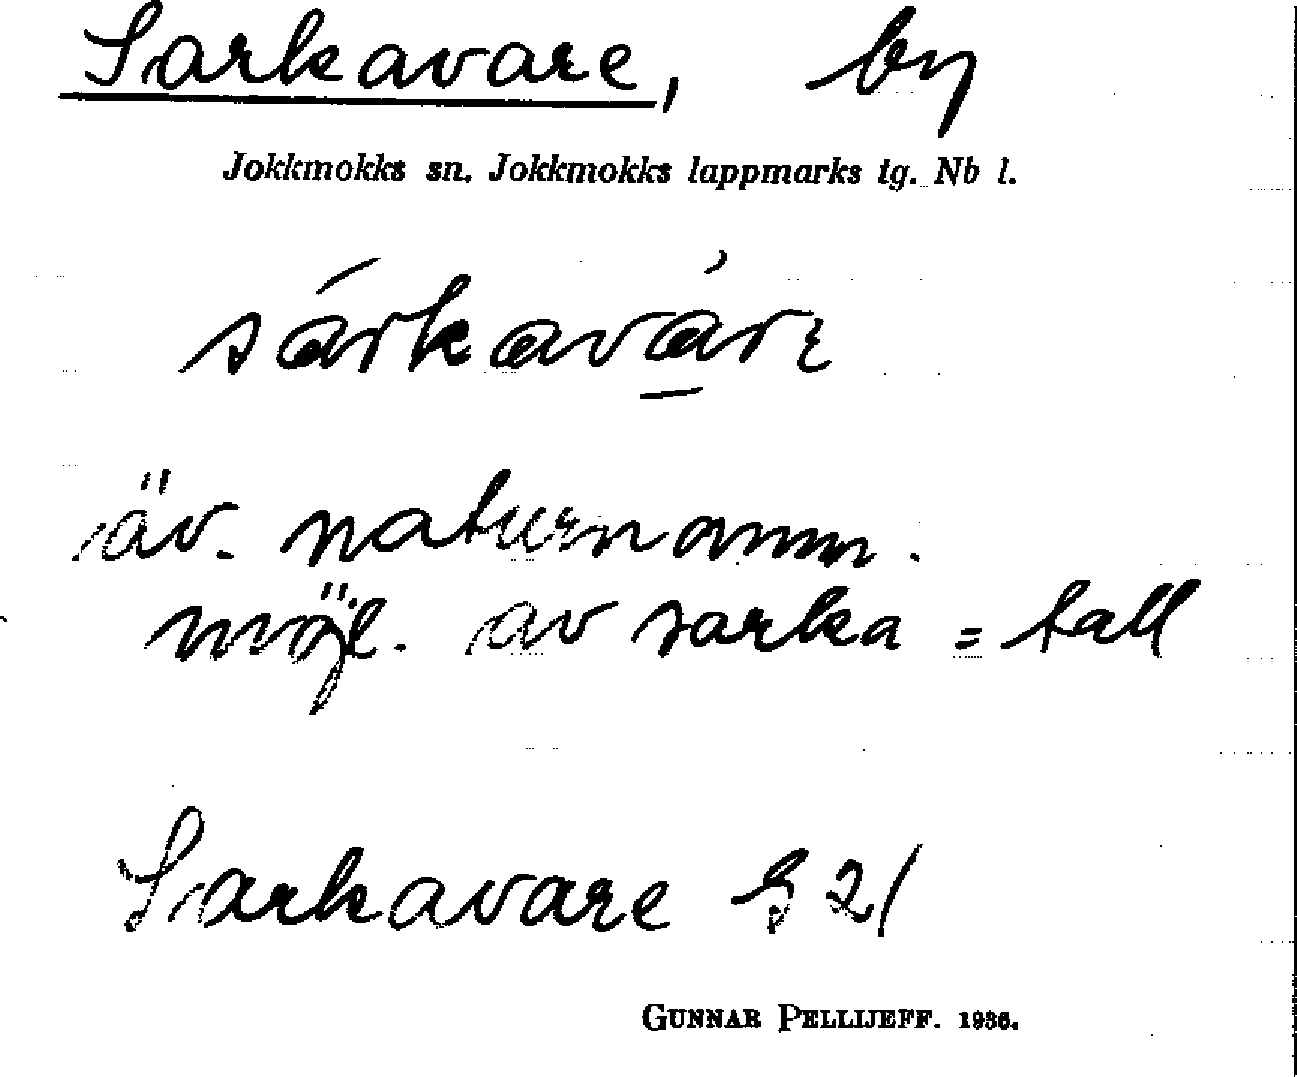 Sarkavare, by
Jokkmokks sn. Jokkmokks lappmarks tg. Nb l.
sárkavàrɛ
äv. naturnamn.
möjl. av sarka = tall
Sarkavare § 21
GUNNAR PELLIJEFF. 1936.